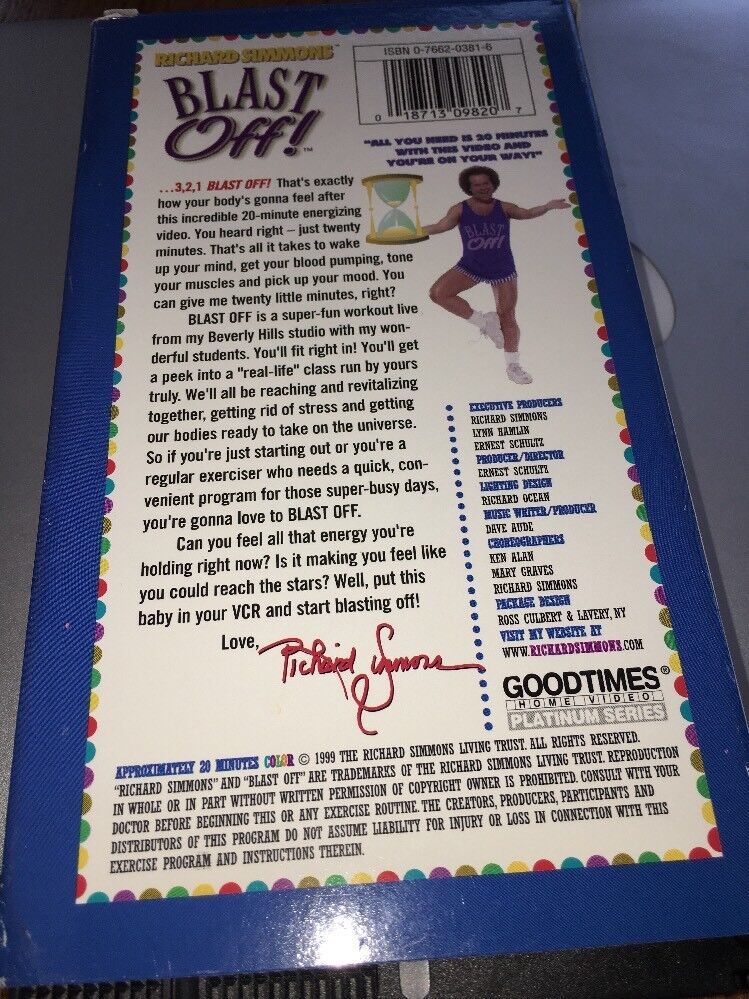 RICHARD SIMMONS™
BLAST
Off!™
ISBN 0-7662-0381-6
0 18713 09820 7
"ALL YOU NEED IS 20 MINUTES
WITH THIS VIDEO AND
YOU'RE ON YOUR WAY!"
...3,2,1 BLAST OFF! That's exactly
how your body's gonna feel after
this incredible 20-minute energizing
video. You heard right – just twenty
minutes. That's all it takes to wake
up your mind, get your blood pumping, tone
your muscles and pick up your mood. You
can give me twenty little minutes, right?
BLAST OFF is a super-fun workout live
from my Beverly Hills studio with my won-
derful students. You'll fit right in! You'll get
a peek into a "real-life" class run by yours
truly. We'll all be reaching and revitalizing
together, getting rid of stress and getting
our bodies ready to take on the universe.
So if you're just starting out or you're a
regular exerciser who needs a quick, con-
venient program for those super-busy days,
you're gonna love to BLAST OFF.
Can you feel all that energy you're
holding right now? Is it making you feel like
you could reach the stars? Well, put this
baby in your VCR and start blasting off!
Love,
Richard Simmons
BLAST
Off!
EXECUTIVE PRODUCERS
RICHARD SIMMONS
LYNN HAMLIN
ERNEST SCHULTZ
PRODUCER/DIRECTOR
ERNEST SCHULTZ
LIGHTING DESIGN
RICHARD OCEAN
MUSIC WRITER/PRODUCER
DAVE AUDE
CHOREOGRAPHERS
KEN ALAN
MARY GRAVES
RICHARD SIMMONS
PACKAGE DESIGN
ROSS CULBERT & LAVERY, NY
VISIT MY WEBSITE AT
WWW.RICHARDSIMMONS.COM
GOODTIMES®
HOME VIDEO
PLATINUM SERIES
APPROXIMATELY 20 MINUTES COLOR © 1999 THE RICHARD SIMMONS LIVING TRUST. ALL RIGHTS RESERVED.
"RICHARD SIMMONS" AND "BLAST OFF" ARE TRADEMARKS OF THE RICHARD SIMMONS LIVING TRUST. REPRODUCTION
IN WHOLE OR IN PART WITHOUT WRITTEN PERMISSION OF COPYRIGHT OWNER IS PROHIBITED. CONSULT WITH YOUR
DOCTOR BEFORE BEGINNING THIS OR ANY EXERCISE ROUTINE. THE CREATORS, PRODUCERS, PARTICIPANTS AND
DISTRIBUTORS OF THIS PROGRAM DO NOT ASSUME LIABILITY FOR INJURY OR LOSS IN CONNECTION WITH THIS
EXERCISE PROGRAM AND INSTRUCTIONS THEREIN.